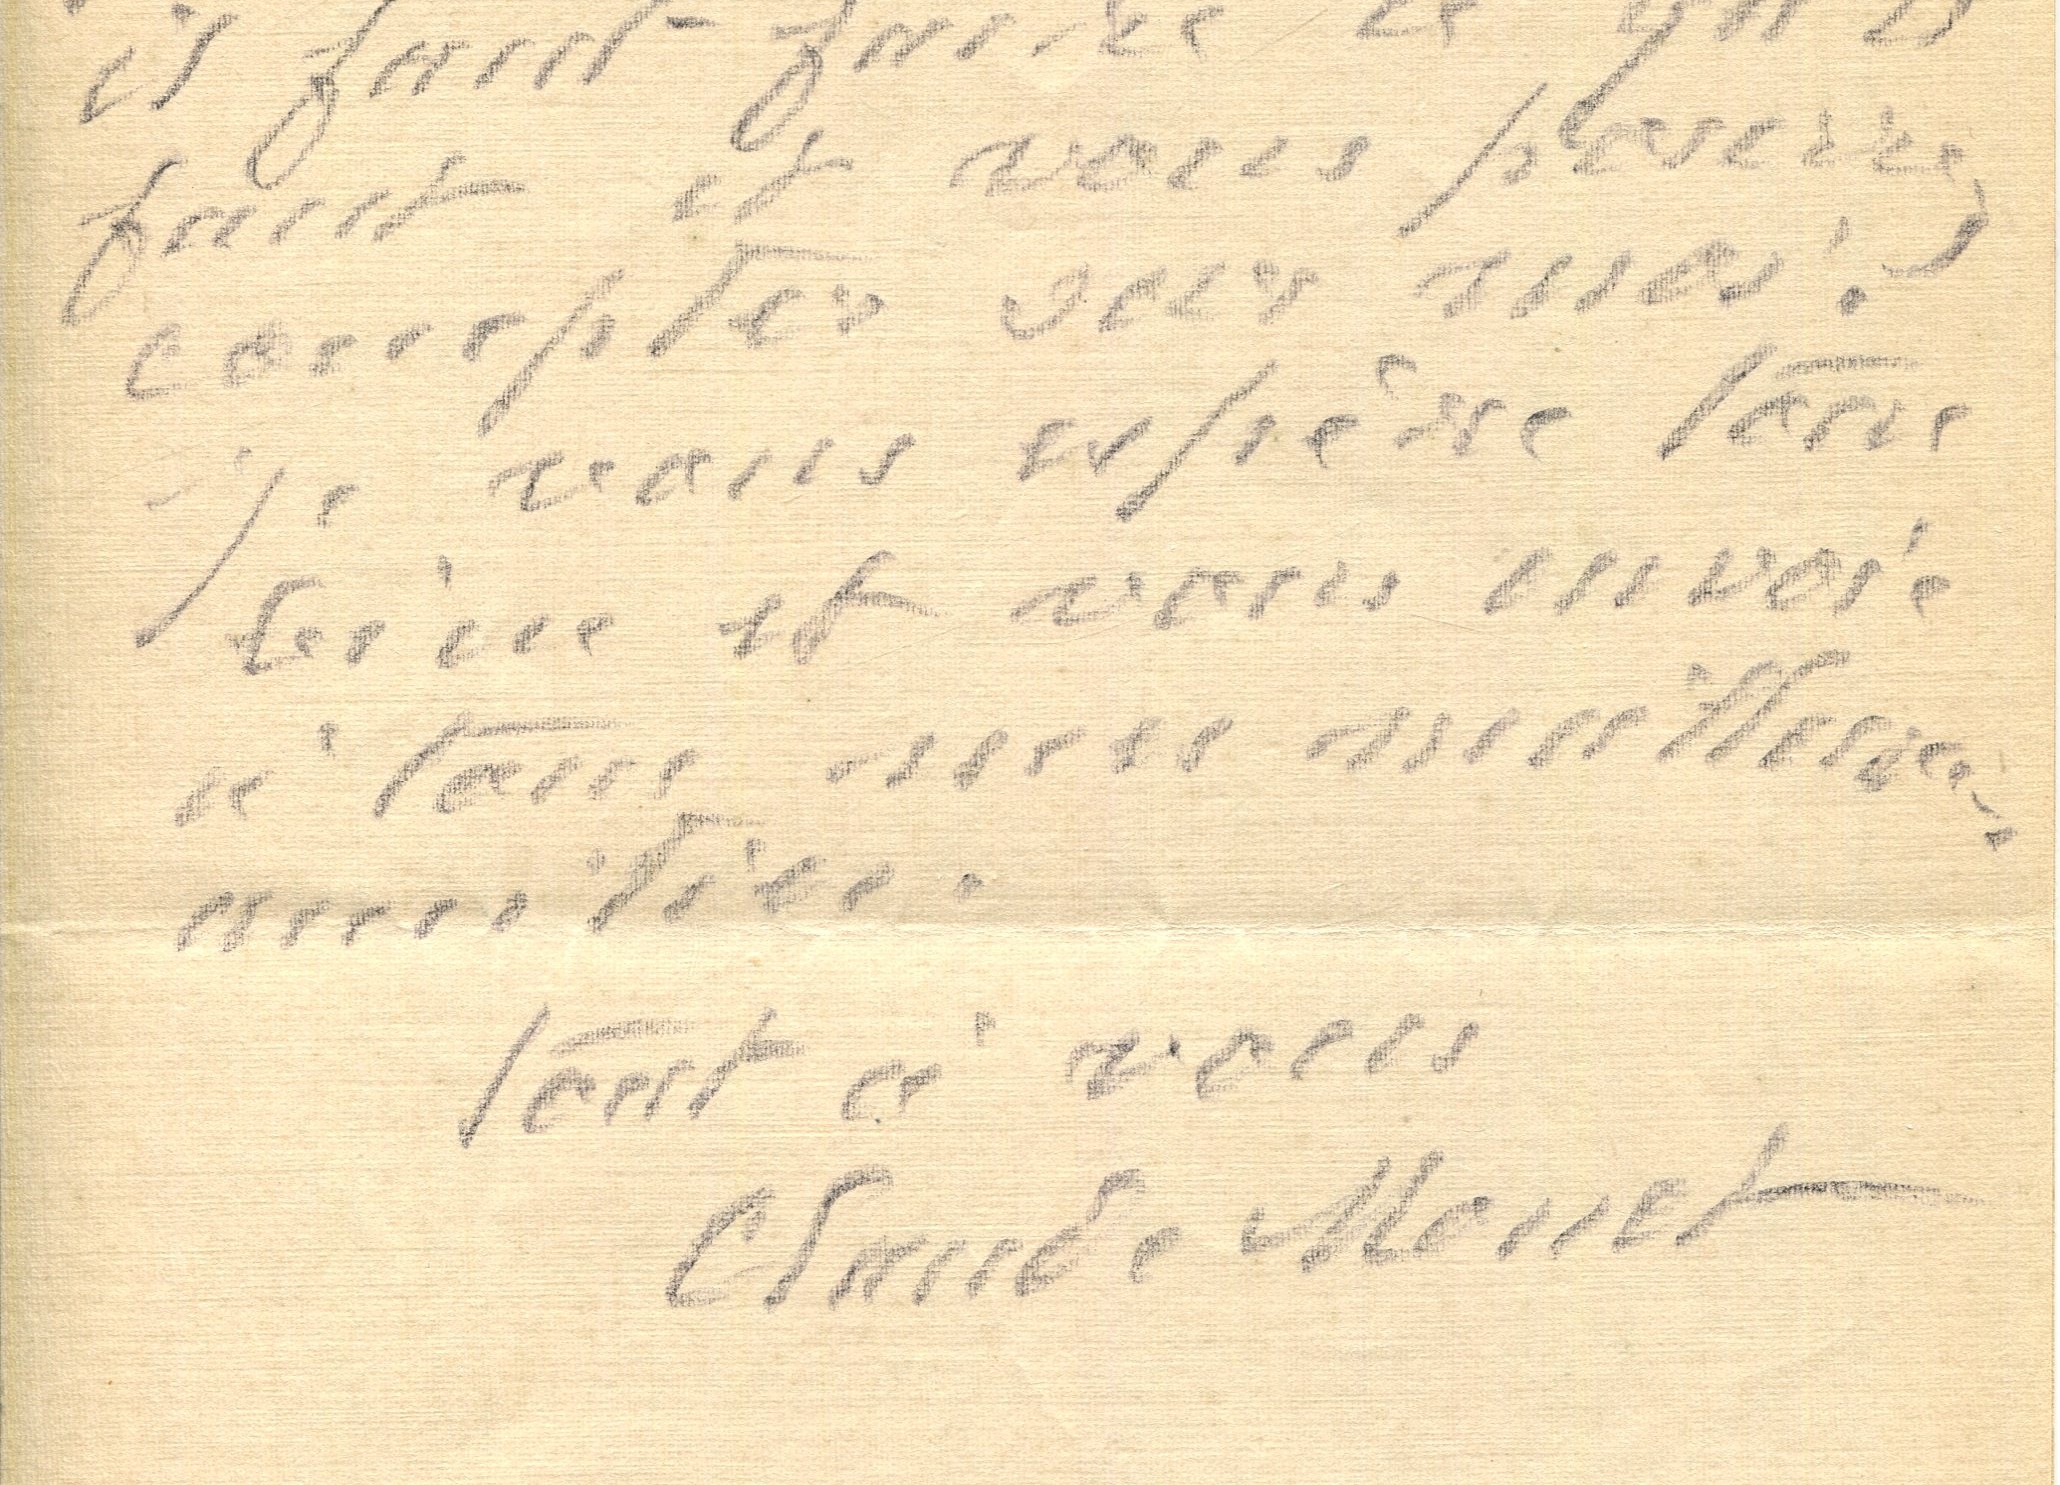 il faut faire ce qu'il
faut et vous pouvez
compter sur moi.
Je vous espère tous
bien et vous envoie
à tous mes meilleures
amitiés.
tout à vous
Claude Monet